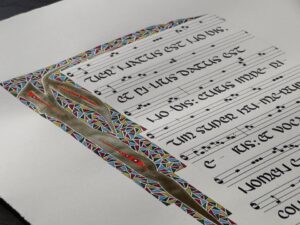 PUER NATUS EST NO BIS
ET FI LIUS DATUS EST
NO BIS: CUIUS IMPE RI
UM SUPER HU ME-RUM
E - IUS: ET VOC
NOMEN E
CON